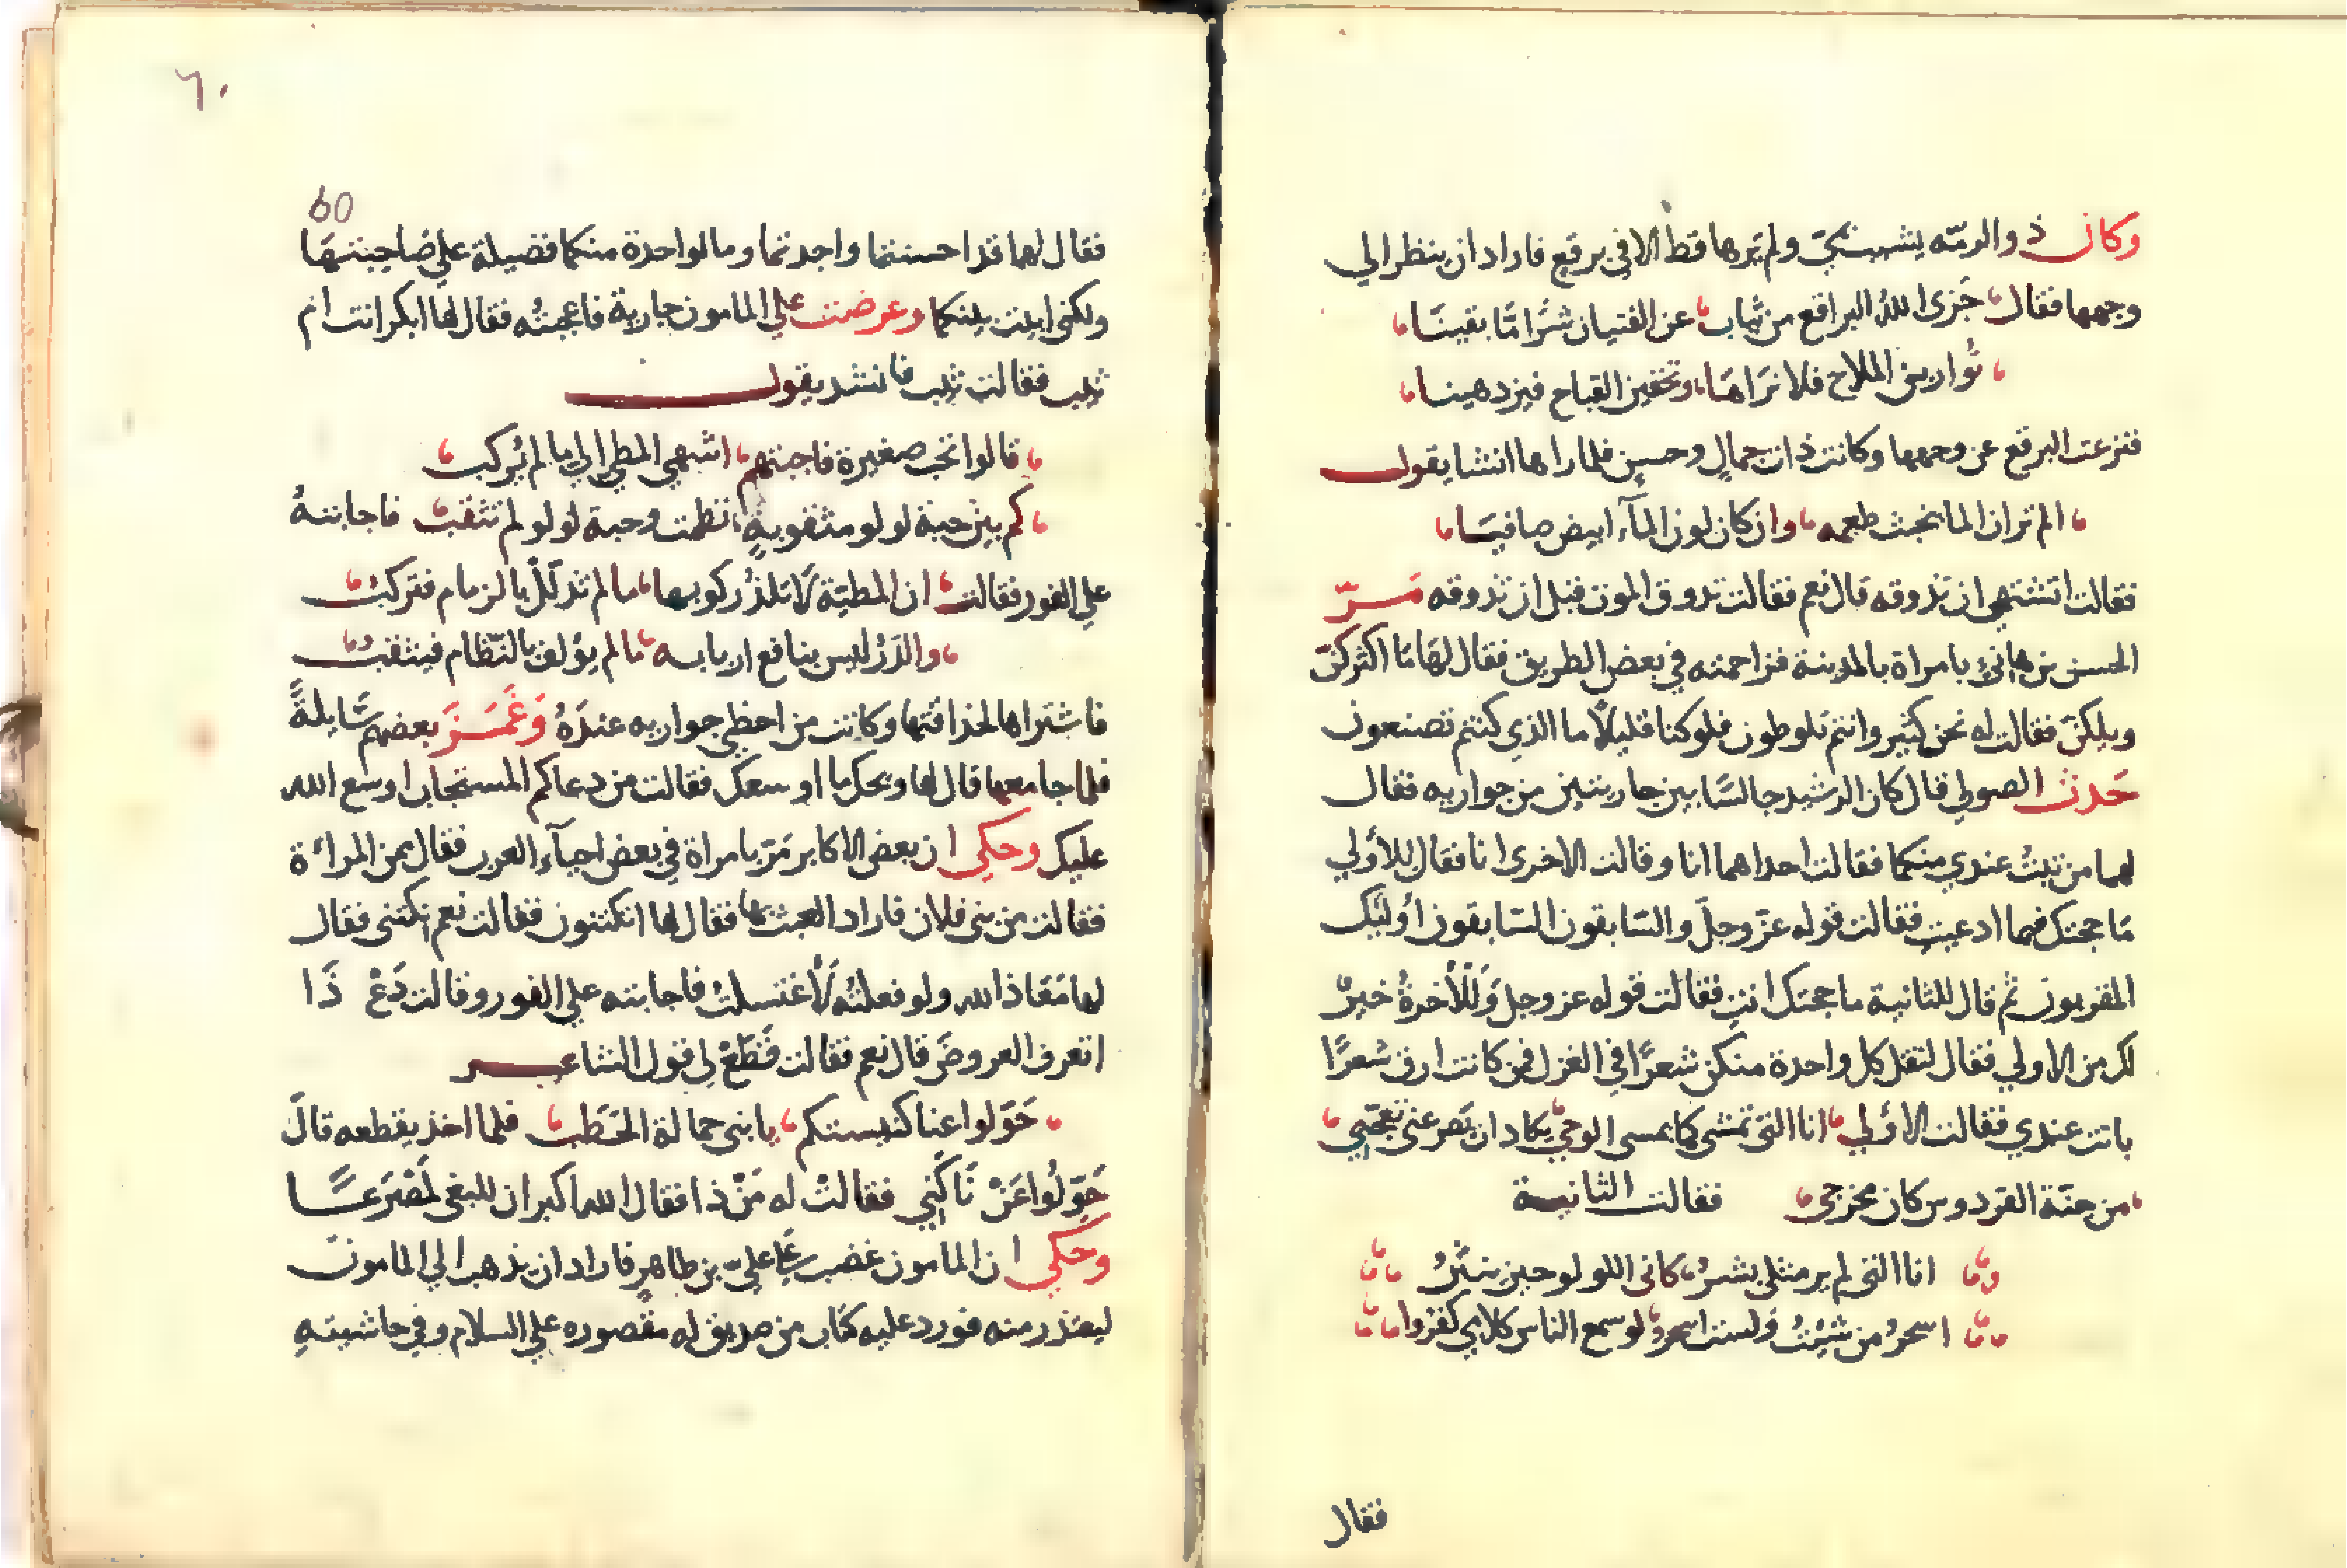 وكان ذو الرمّه يشبب بميّ ولم يرها قط الا في برقع فاراد ان ينظر الي
وجهها فقال جَزي اللهُ البراقع من ثياب عن الفتيان شرًا مّا بقينَا
تُوارين الملاح فلا نرَاهَا وتخفين القباح فيزدهينا
فنزعت البرقع عن وجهها وكانت ذات جمالٍ وحسنٍ فلما راها انشا يقول
الم تر ان الما يخبث طعمه وان كان لون المآء ابيض صافيَا
فقالت اتشتهي ان تذوقه قال نعم فقالت تذوق الموت قبل ان تذوقه مَرّ
الحسن بن هانئ بامراة بالمدينة فزاحمته في بعض الطريق فقال لهَا مَا اكثركنّ
ويلكنّ فقالت له نحن كثير وانتم تلوطون فلو كنا قليلًا ما الذي كنتم تصنعون
حَدث الصولي قال كان الرشيد جالسًا بين جاريتين من جواريه فقال
لهما من تبيتُ عندي منكما فقالت احداهما انا وقالت الاخرى انا فقال للأولي
مَا حجتك فيما ادعيتِ فقالت قوله عزّ وجلّ والسّابقون السّابقون أوليٓك
المقربون ثم قال للثانية ما حجتك انتِ فقالت قوله عز وجل وَللْأخرةُ خيرٌ
لك من الاولي فقال لتقل كل واحدة منكن شعرًا في الغزل فمن كانت ارق شعرًا
باتت عندي فقالت الأولي انا التي تمشي كما يمسى الوجي يكاد ان يَصرعني تغنّجي
من جنّة الفردوس كان مخرجي فقالت الثانية
انا التي لم ير مثلي بشرُ كاني اللولو حين ينثَرُ
اسحرُ من شئتُ وَلست اسحرُ لو سمع الناس كلامي كفرُوا
فقال
٦٠
60
فقال لهما قد احسنتما واجدتما وما لواحدة منكما فضيلة علي صَاحِبتهَا
ولكني ابيت بينكما وعرضت علي المامون جارية فاعجبتُه فقال لها ابكر انت ام
ثيب فقالت ثيب فانشد يقول
قالوا تحب صغيرة فاجبتهم اشهي المطي الي ما لم يُركب
كم بين حبة لولو مثقوبةٍ نظمت وحبة لولو لم تثقب فاجابتهُ
علي الفور فقالت ان المطيّة لَا يلذُ ركوبها ما لم تُذلّلْ بالزمام فتركبُ
والدّرُ ليس بنافع اربابه ما لم يؤلف بالنّظام فيثقبُ
فاشتراها لحذاقتها وكانت من احظي جواريه عندَهُ وَغَمَزَ بعضهم سَّايلةً
فلما جامعها قال لها ويحك ما اوسعك فقالت من دعاكم المستجاب اوسع الله
عليك وحكي ان بعض الاكابر مَرّ بامراة في بعض احيآء العرب فقال ممن المراة
فقالت من بني فلان فاراد العبث بها فقال لها اتكتنون فقالت نعم نكتنى فقال
لها مَعَاذ الله ولو فعلتُه لَاغتسلتُ فاجابته علي الفور وقالت دَعْ ذَا
اتعرف العروضَ قال نعم فقالت قَطّعْ لي قول الشاعر
حَوّلوا عنا كنيستكم يا بني حمالة الحَطَب فلما اخذ يقطعه قالَ
حَوّلُوا عَنْ نَاكَنِي فقالتْ له مَنْ ذا فقال الله اكبر ان للبغي لَمَصْرَعًا
وحكي ان المامون غضب علي عليّ بن طاهرٍ فاراد ان يذهب الي المامون
ليعتذر منه فورد عليه كتاب من صديق له مقصوره علي السلام وفي حاشيتهِ